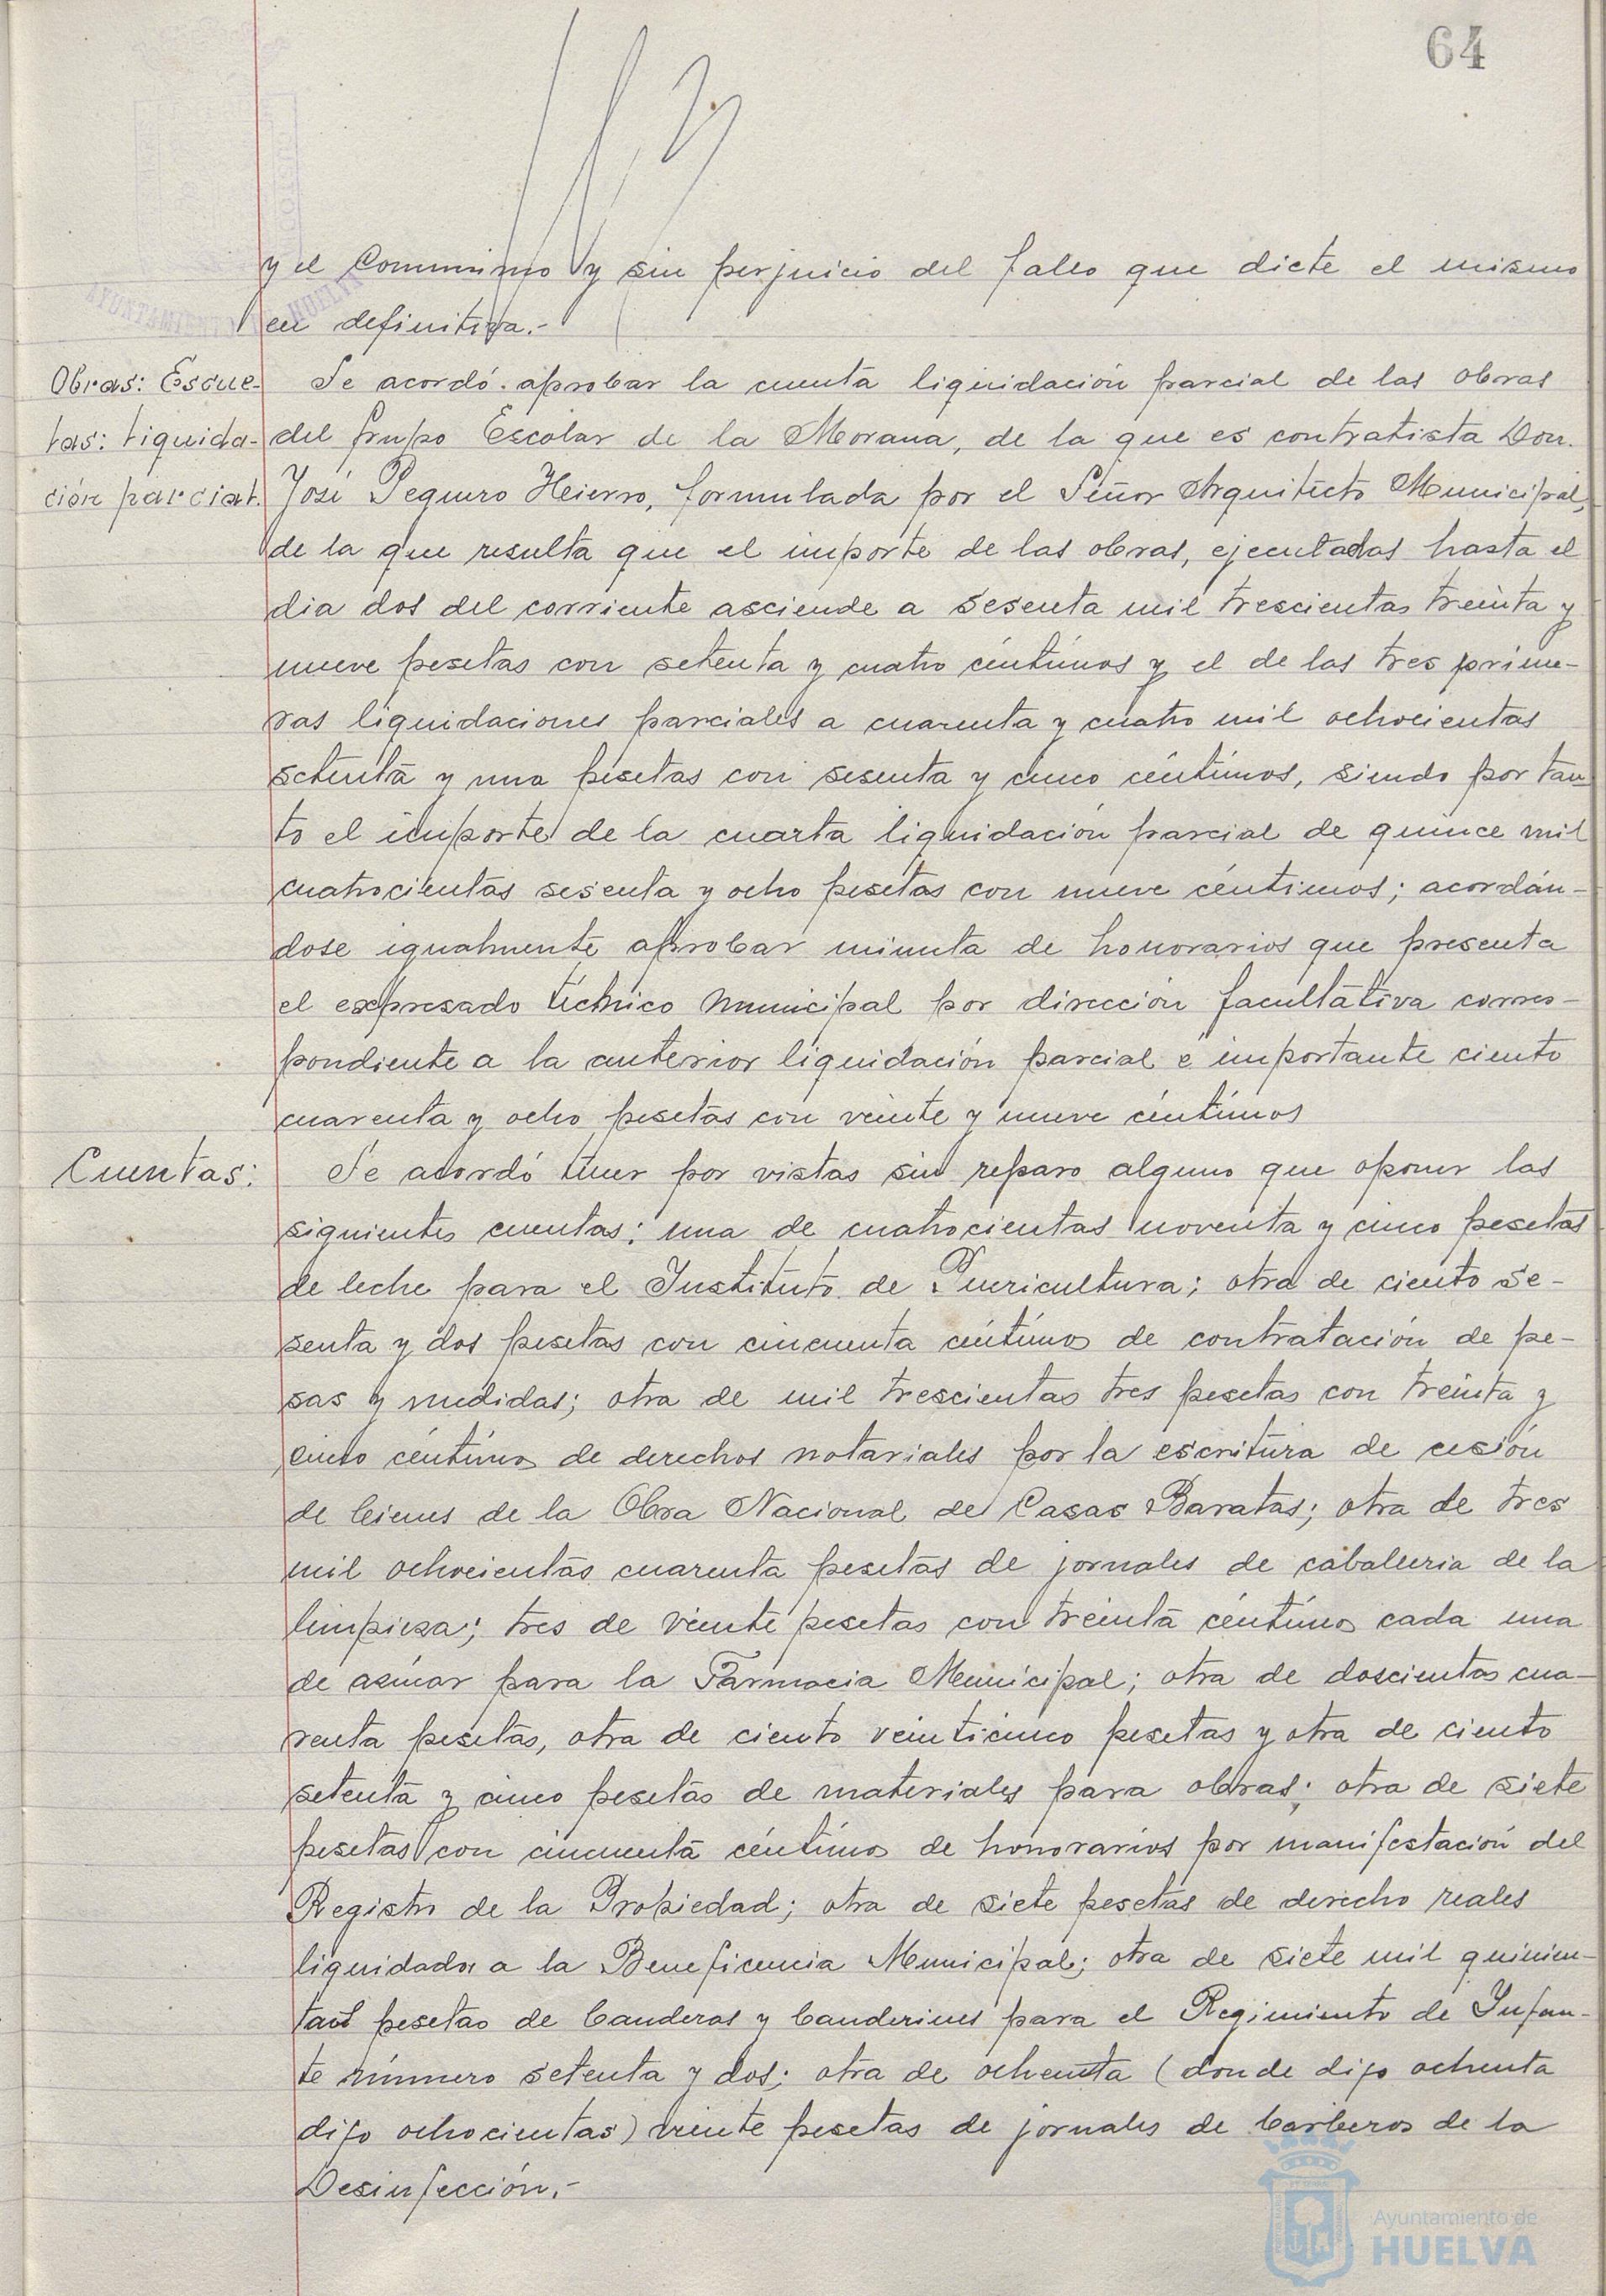 64
y el Commismo y sin perjuicio del fallo que dicte el mismo
en definitiva.-
Obras: Escue-
las: Liquida-
ción parcial.
Se acordó aprobar la cuenta liquidación parcial de las obras
del Grupo Escolar de la Morana, de la que es contratista Don
José Peguero Hierro, formulada por el Señor Arquitecto Municipal,
de la que resulta que el importe de las obras, ejecutadas hasta el
dia dos del corriente asciende a sesenta mil trescientas treinta y
nueve pesetas con setenta y cuatro céntimos y el de las tres prime-
ras liquidaciones parciales a cuarenta y cuatro mil ochocientas
setenta y una pesetas con sesenta y cinco céntimos, siendo por tan-
to el importe de la cuarta liquidación parcial de quince mil
cuatrocientas sesenta y ocho pesetas con nueve céntimos; acordán-
dose igualmente aprobar minuta de honorarios que presenta
el expresado técnico municipal por dirección facultativa corres-
pondiente a la anterior liquidación parcial e importante ciento
cuarenta y ocho pesetas con veinte y nueve céntimos
Cuentas:
Se acordó tener por vistas sin reparo alguno que oponer las
siguientes cuentas: una de cuatrocientas noventa y cinco pesetas
de leche para el Instituto de Puericultura; otra de ciento se-
senta y dos pesetas con cincuenta céntimos de contratación de pe-
sas y medidas; otra de mil trescientas tres pesetas con treinta y
cinco céntimos de derechos notariales por la escritura de cesión
de bienes de la Obra Nacional de Casas Baratas; otra de tres
mil ochocientas cuarenta pesetas de jornales de caballeria de la
limpieza; tres de veinte pesetas con treinta céntimos cada una
de azúcar para la Farmacia Municipal; otra de doscientas cua-
renta pesetas, otra de ciento veinticinco pesetas y otra de ciento
setenta y cinco pesetas de materiales para obras; otra de siete
pesetas con cincuenta céntimos de honorarios por manifestación del
Registro de la Propiedad; otra de siete pesetas de derecho reales
liquidados a la Beneficencia Municipal; otra de siete mil quinien-
tas pesetas de banderas y banderines para el Regimiento de Infan-
te número setenta y dos; otra de ochenta (donde dijo ochenta
dijo ochocientas) veinte pesetas de jornales de barberos de la
Desinfección.-
Ayuntamiento de
HUELVA